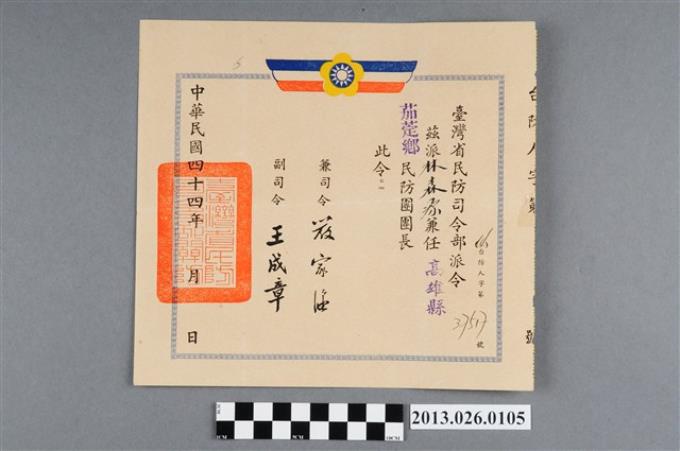 臺灣省民防司令部派令
(44)台防人字第37517號
茲派林森源兼任高雄縣
茄萣鄉民防團團長
此令。
兼司令 嚴家淦
副司令 王成章
中華民國四十四年 月 日
台防人字 號
5
2013.026.0105